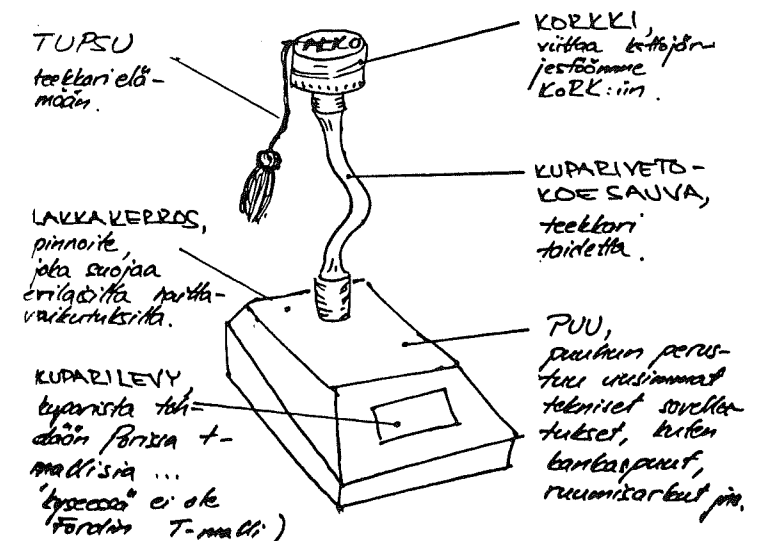 TUPSU
teekkarielä-
mään.
KORKKI,
viittaa kattojär-
jestöömme
KORK:iin.
KUPARIVETO-
KOESAUVA,
teekkari
taidetta.
LAKKAKERROS,
pinnoite,
joka suojaa
erilaisilta haitta-
vaikutuksilta.
PUU,
puuhun perus-
tuu uusimmat
tekniset sovellu-
tukset, kuten
kankaspuut,
ruumisarkut jne.
KUPARILEVY,
kuparista teh-
dään Porissa t-
mallisia ...
"kyseessä" ei ole
Fordin T-malli)